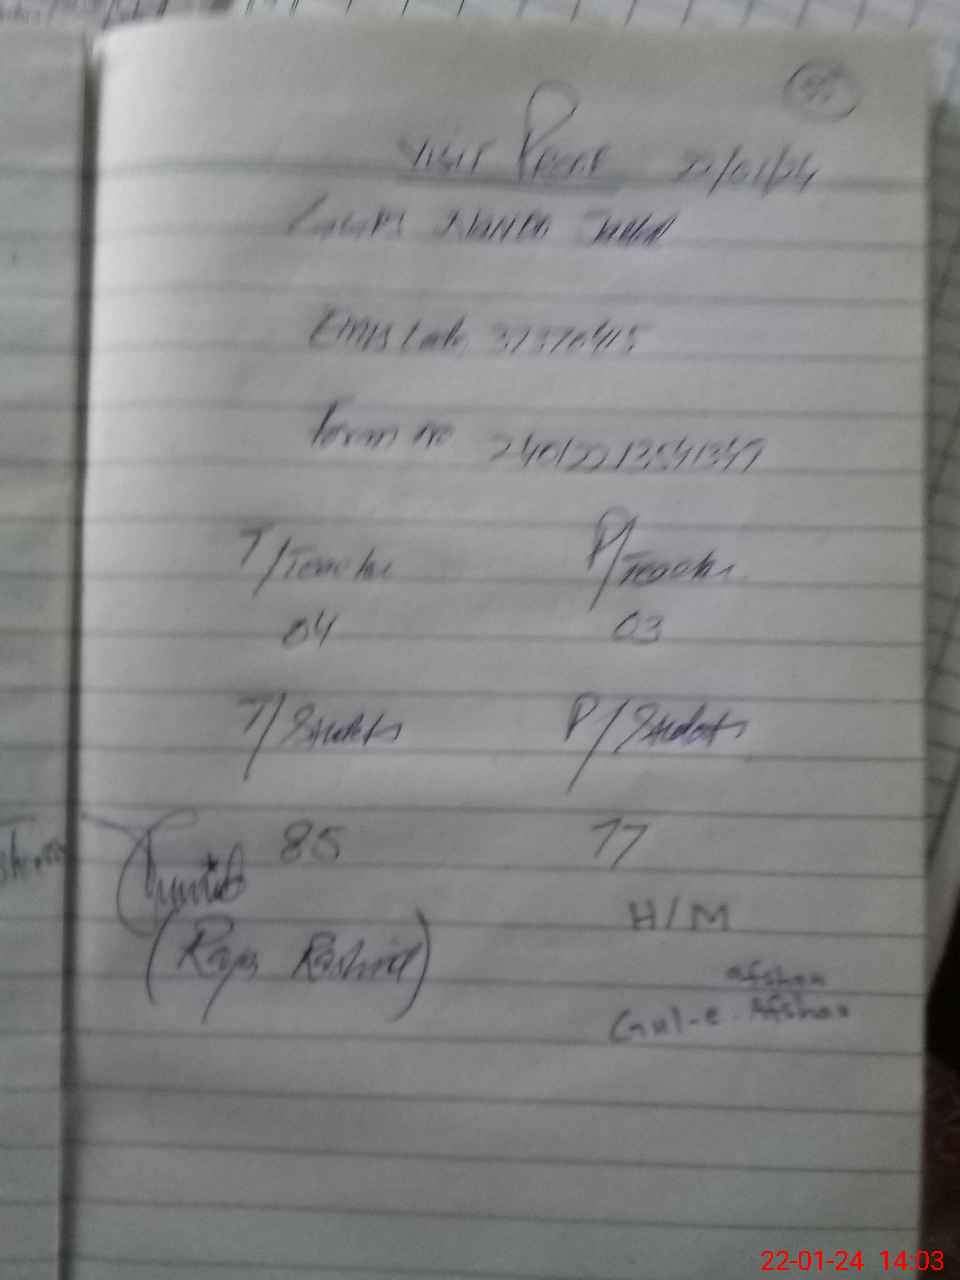 Visit Proof 22/01/24
EMIS Code 37370415
Form no 24012213541347
T/Teacher P/Teacher
04 03
T/Students P/Students
85 77
H/M
(Raja Rashid)
afshan
Gul-e-Afshan
22-01-24 14:03